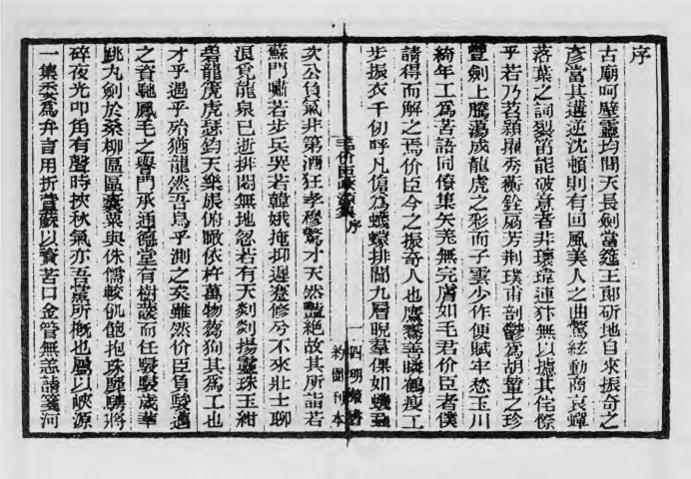 序
古廟呵壁靈均問天長劍當筵王郎斫地自來振奇之
彥當其遘逆沈頓則有回風美人之曲驚絃動商哀蟬
落葉之詞製笛能破意者非瓌瑋連犿無以攄其侘傺
乎若乃苕穎擢秀蘅銓扇芳荆璞甫剖鬱為胡之珍
豐劍上騰蕩成龍虎之彩而子雲少作便賦牢愁玉川
綺年工為苦語同僚集矢羌無完膚如毛君价臣者僕
請得而解之焉价臣今之振奇人也鷹善瞵鶴瘦工
步振衣千仞呼凡傖為蟣排閶九層睨羣倮如蛾蝨
价臣峽源集 序
一 四明叢書
約園刊本
次公負氣非第酒狂孝穆驚才天然豔絕故其所詣若
蘇門嘯若步兵哭若韓娥掩抑遲蹇修兮不來壯士聊
浪覓龍泉已逝排悶無地忽若有天剡剡揚靈珠玉紺
碧龍笢虎瑟鈞天樂脹俯瞰依杵萬物芻狗其為工也
才乎遇乎殆猶龍然吾烏乎測之矣雖然价臣負駿邁
之資馳鳳毛之譽門承通德室有樹諼而任駸駸歲華
跳丸劍於桑柳區區囊粟與侏儒較飢飽抱珠驪將
碎夜光叩角有聲時挾秋氣亦吾黨所慨也屬以峽源
一集委為弁言用折萱蘇以賚苦口金管無恙請箋河